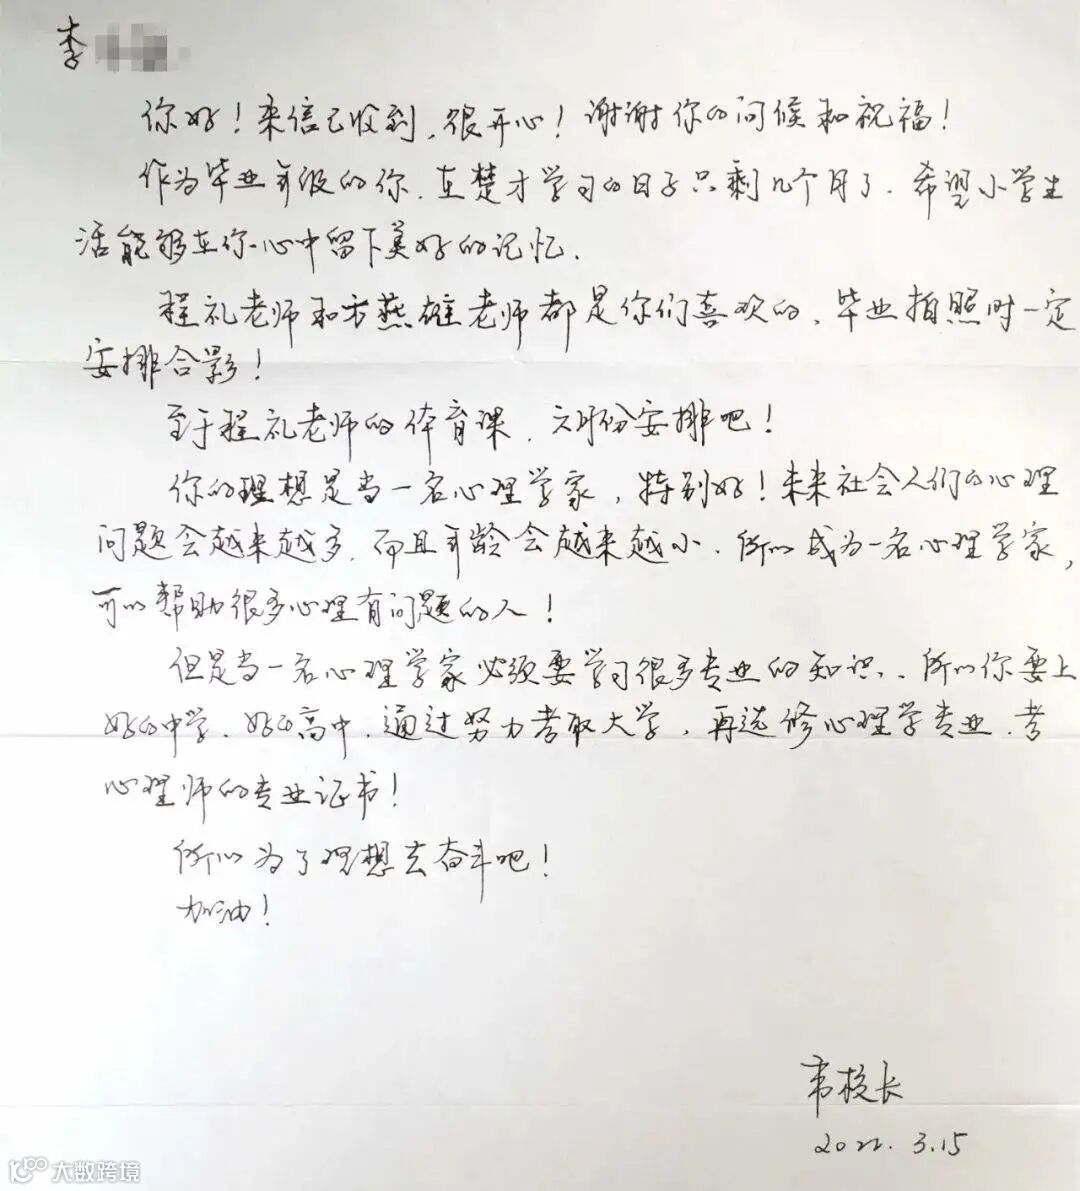 李
你好！来信已收到，很开心！谢谢你的问候和祝福！
作为毕业年级的你，在楚才学习的日子只剩几个月了，希望小学生
活能够在你心中留下美好的记忆。
程礼老师和方燕雄老师都是你们喜欢的，毕业拍照时一定
安排合影！
至于程礼老师的体育课，六月份安排吧！
你的理想是当一名心理学家，特别好！未来社会人们的心理
问题会越来越多，而且年龄会越来越小，所以成为一名心理学家，
可以帮助很多心理有问题的人！
但是当一名心理学家必须要学习很多专业的知识，所以你要上
好的中学、好的高中，通过努力考取大学，再选修心理学专业，考
心理师的专业证书！
所以为了理想去奋斗吧！
加油！
韦校长
2022.3.15
大数跨境